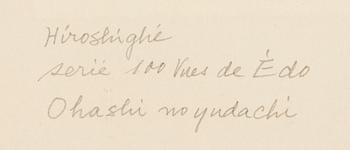 Hiroshighé
serie 100 Vues de Édo
Ohashi no yudachi